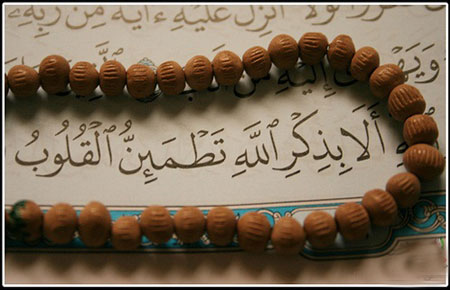 لَوْلَآ أُنزِلَ عَلَيْهِ ءَايَةٌ مِّن رَّبِّهِۦ
وَيَهْدِىٓ إِلَيْهِ مَنْ
أَلَا بِذِكْرِ ٱللَّهِ تَطْمَئِنُّ ٱلْقُلُوبُ